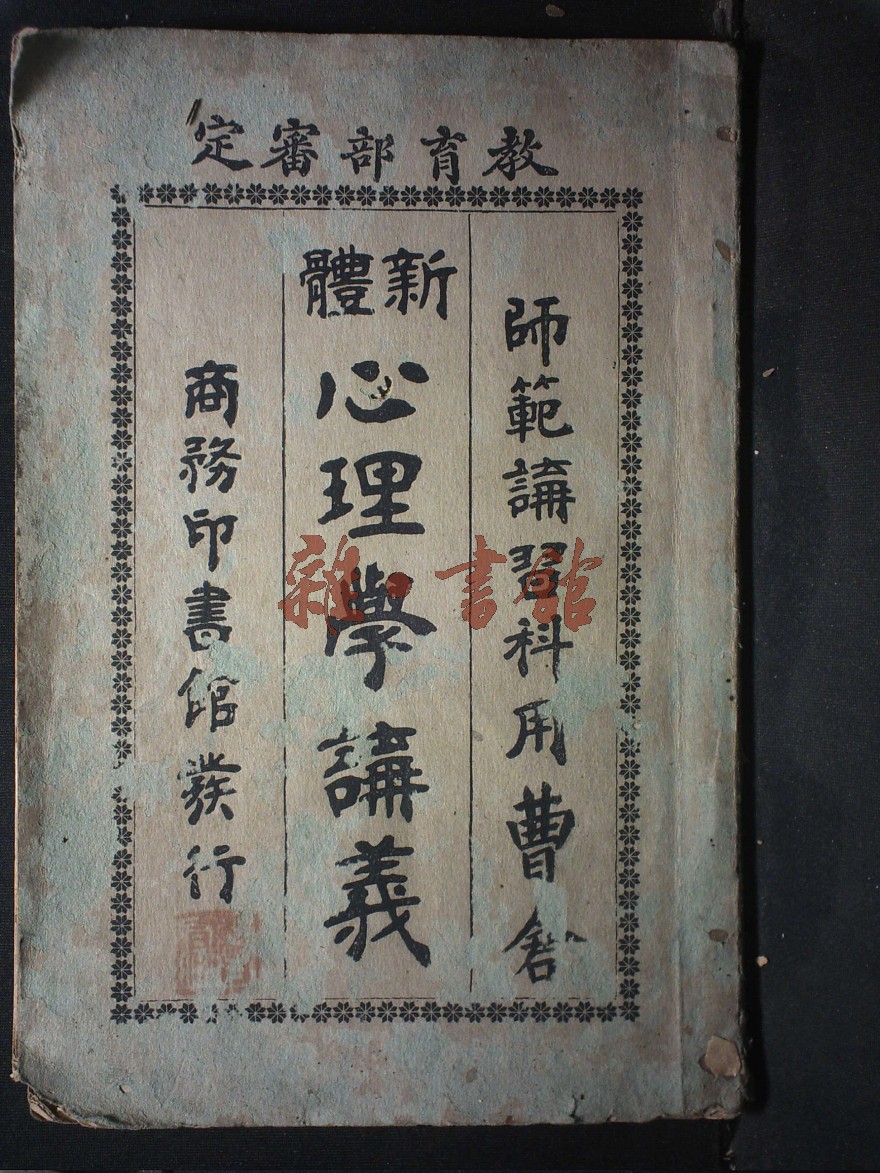 教育部審定
師範講習科用
曹
新體
心理學講義
商務印書館發行
雜·書館